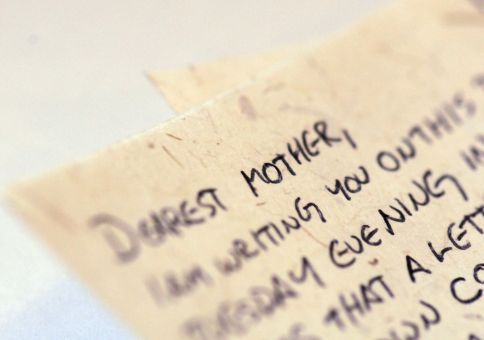 DEAREST MOTHER,
I AM WRITING YOU ON THIS
TUESDAY EVENING IN
THAT A LETT
OWN CO